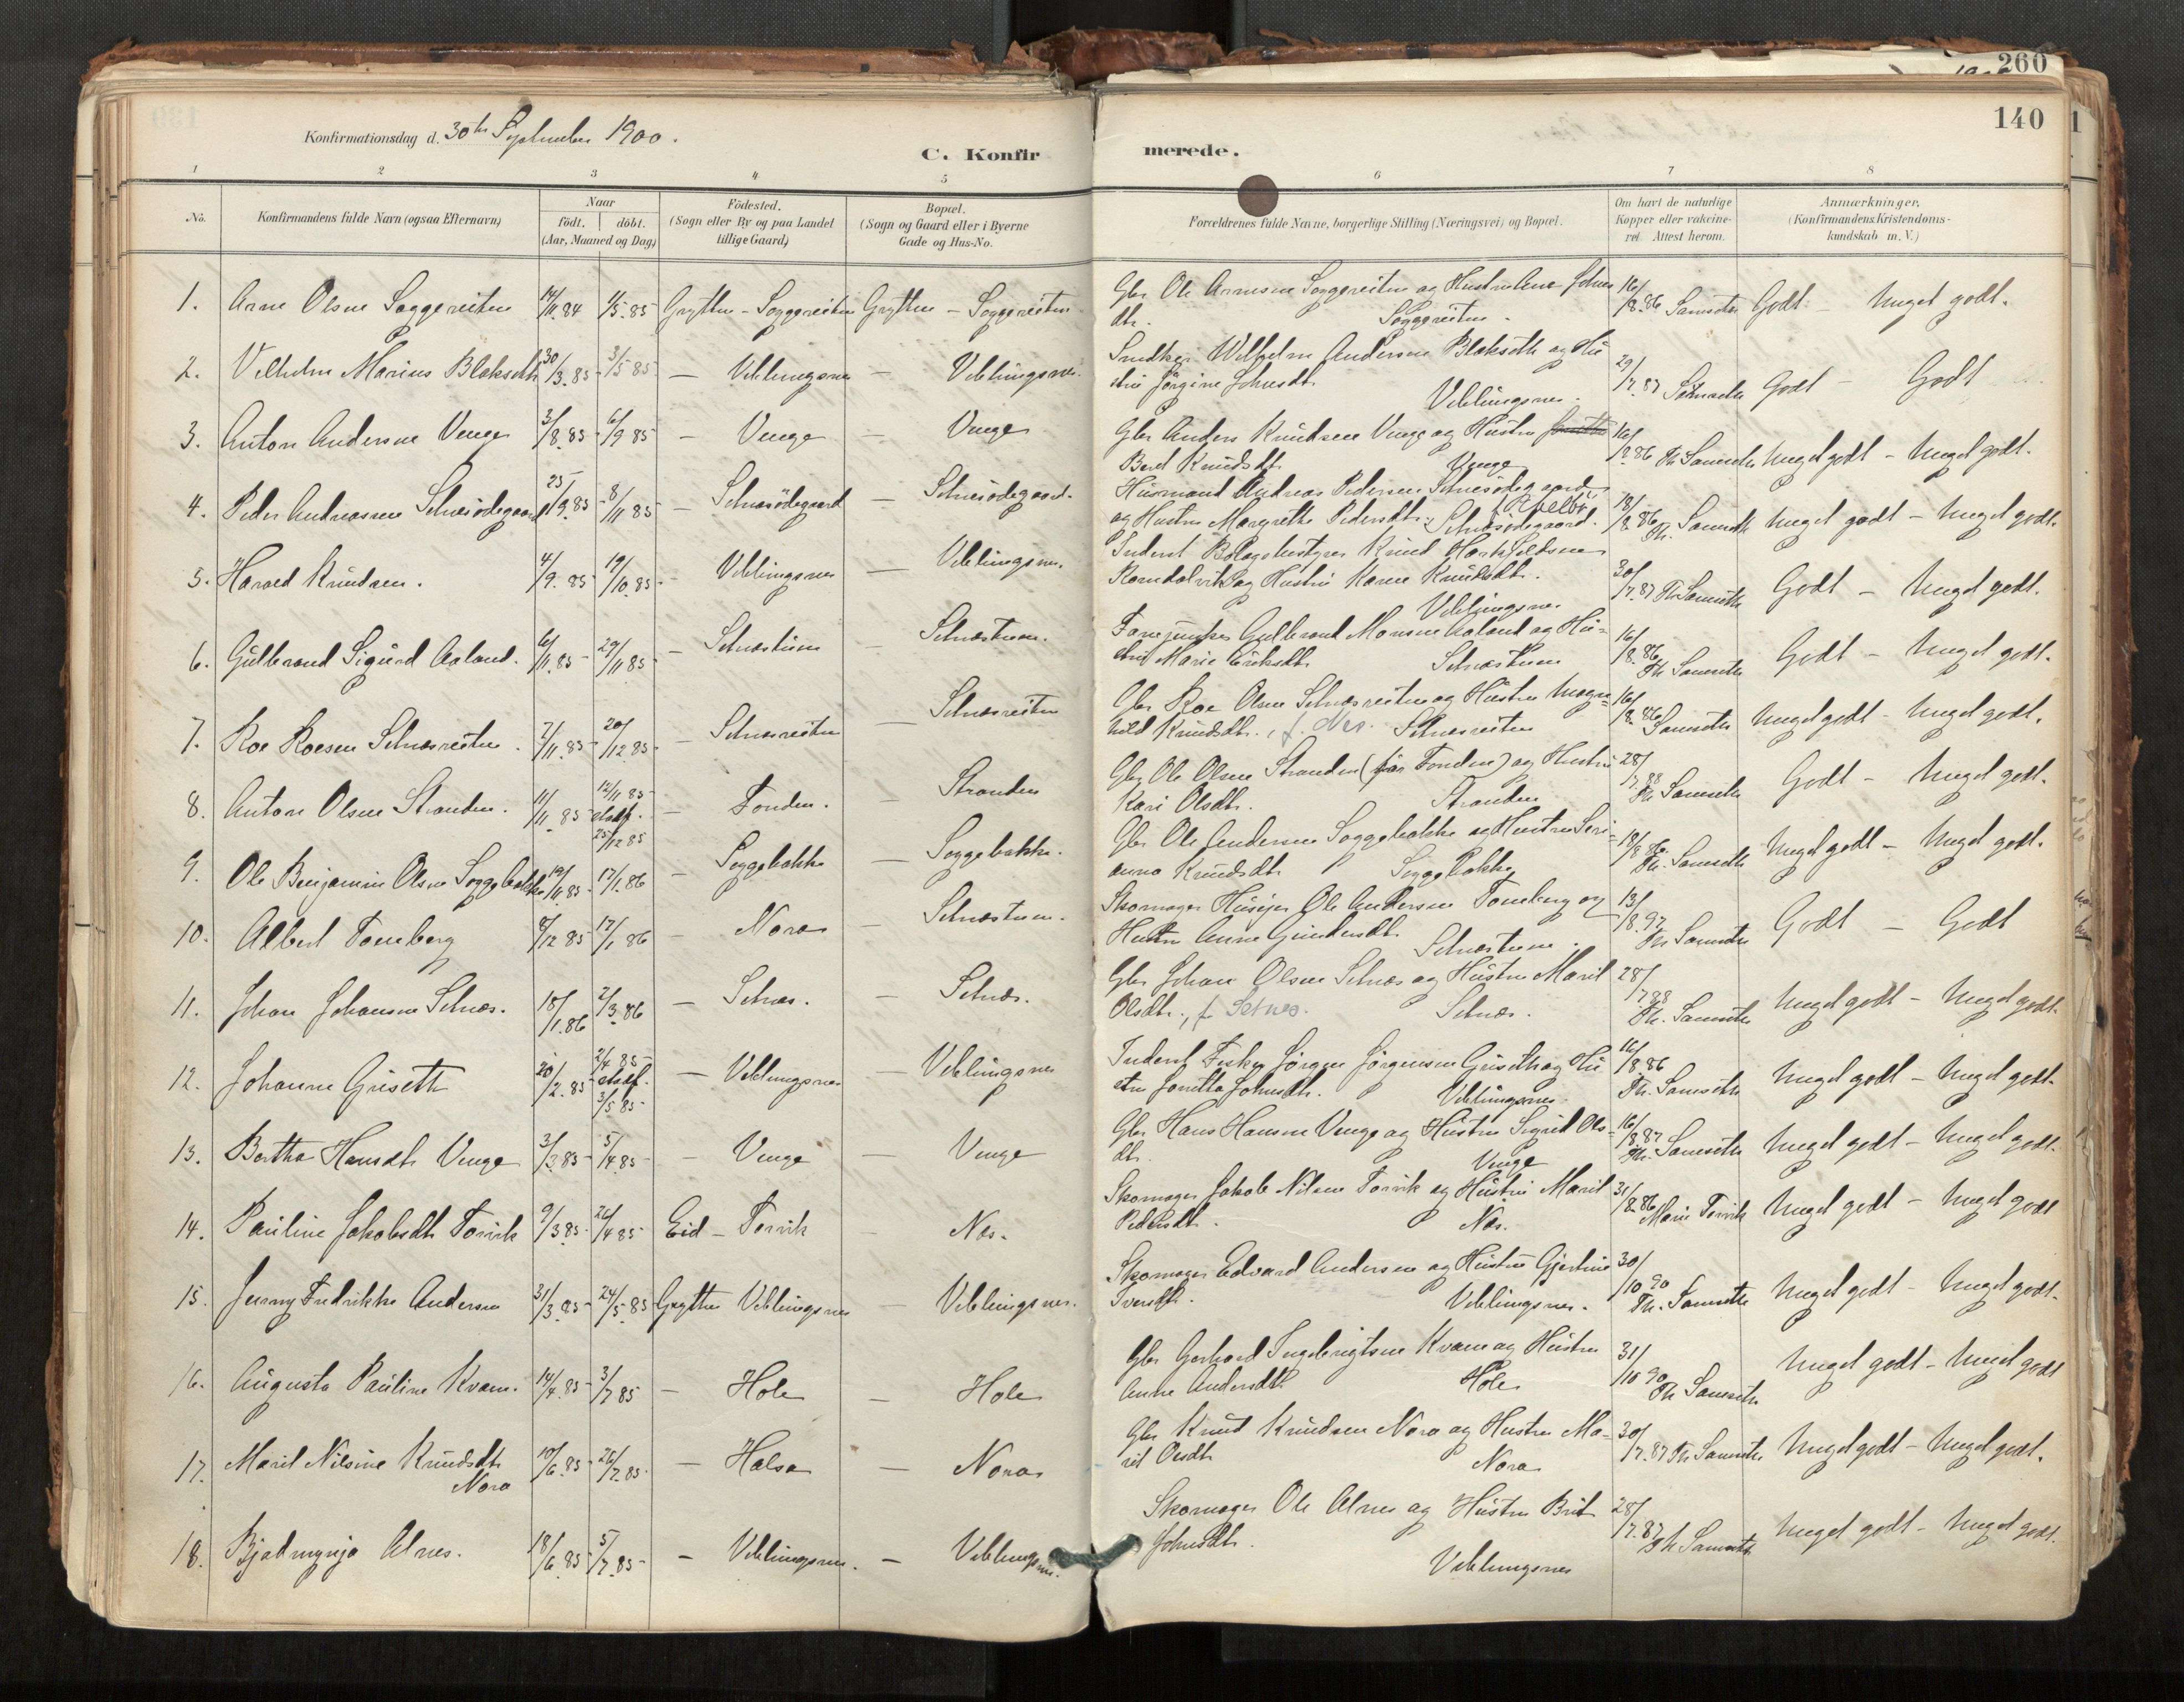 260
140
Konfirmationsdag d. 30te September 1900.
C. Konfirmerede.
1 2 3 4 5 6 7 8
No.
Konfirmandens fulde Navn (ogsaa Efternavn)
Naar
födt. döbt.
(Aar, Maaned og Dag)
Födested.
(Sogn eller By og paa Landet
tillige Gaard)
Bopæl.
(Sogn og Gaard eller i Byerne
Gade og Hus-No.
Forældrenes fulde Navne, borgerlige Stilling (Næringsvei) og Bopæl.
Om havt de naturlige
Kopper eller vakcine-
ret. Attest herom.
Anmærkninger.
(Konfirmandens Kristendoms-
kundskab m. V.)
1. Arne Olsen Soggereiten 14/11.84 1/5.85 Grytten - Soggereiten Grytten - Soggereiten
Gbr Ole Arnesen Soggereiten og Hustru Ane Johns
dtr. Soggereiten. 16/8.86 Samseth Godt - Meget godt.
2. Vilhelm Marius Blakseth 30/3.85 3/5 85 - Veblungsnes - Veblungsnes.
Snedker Wilhelm Andersen Blakseth og Hu
stru Jörgine Johnsdtr. Veblungsnes. 29/7.87 Samseth Godt - Godt
3. Anton Andersen Venge 3/8.85 6/9 85 - Venge - Venge
Gbr Anders Knudsen Venge og Hustru
Berit Knudsdtr. Venge 16/8.86 Th Samseth Meget godt - Meget godt.
4. Peder Andreassen Setnesödegaard 25/9.85 8/11 85 - Setnesödegaard - Setnesödegaard.
Husmand Andreas Pedersen Setnesödegaard
og Hustru Margrethe Pedersdtr. Setnesödegaard. 18/8.86 Th. Samseth Meget godt - Meget godt.
5. Harald Knudsen. 4/9.85 19/10.85 - Veblungsnes - Veblungsnes.
Inderst Knud
Romsdalvik og Hustru Karen Knudsdtr.
Veblungsnes 30/7.87 Th Samseth Godt - Meget godt.
6. Gulbrand Sigurd Aaland. 6/11.85 29/11 85 - Setnestuen - Setnestuen.
Gulbrand Monsen Aaland og Hu-
stru Marie Eriksdtr. Setnestuen 16/8.86 Th Samseth Godt - Meget godt.
7. Roe Roesen Setnesreiten. 7/11.85 20/12 85 - Setnesreiten - Setnesreiten
Gbr Roe Olsen Setnesreiten og Hustru Magn-
hild Knudsdtr., f. Nes. Setnesreiten 16/8.86 Samseth Meget godt - Meget godt.
8. Anton Olsen Stranden. 11/11 85 12/11 85 stadf. 25/12 85 - Fonden. - Stranden
Gbr Ole Olsen Stranden (för Fonden) og Hustru
Kari Olsdtr. Stranden 28/7.88 Th Samseth Godt - Meget godt.
9. Ole Benjamin Olsen Soggebakke 19/11.85 17/1.86 - Soggebakke - Soggebakke.
Gbr Ole Andersen Soggebakke og Hustru Seri-
anna Knudsdtr. Soggebakke 18/8 86 Th. Samseth Meget godt - Meget godt.
10. Albert Tomberg 8/12 85 17/1 86 - Nora - Setnestuen.
Skomager Husejer Ole Andersen Tomberg og
Hustru Anne Gundersdtr. Setnestuen. 13/8.97 Th Samseth Godt - Godt
11. Johan Johansen Setnes. 18/1.86 2/3.86 - Setnes. - Setnes.
Gbr Johan Olsen Setnes og Hustru Marit
Olsdtr., f. Setnes. Setnes. 28/7.88 Th. Samseth Meget godt - Meget godt.
12. Johanne Griseth 20/2.85 2/4 85 stadf. 3/5 85 - Veblungsnes - Veblungsnes
Inderst Fisker Jörgen Jörgensen Griseth og Hu
stru Jonetta Johnsdtr. Veblungsnes. 16/8.86 Th. Samseth Meget godt - Meget godt.
13. Bertha Hansdtr Venge 3/3.85 5/4 85 - Venge - Venge
Gbr Hans Hansen Venge og Hustru Sigrid Ols-
dtr. Venge 16/8.87 Th. Samseth Meget godt - Meget godt.
14. Pauline Jakobsdtr Torvik 9/3.85 26/4 85 Eid - Torvik - Nes.
Skomager Jakob Nilsen Torvik og Hustru Marit
Pedersdtr. Nes. 31/8.86 Marie Torvik Meget godt - Meget godt
15. Jenny Fredrikke Andersen 31/3.85 24/5.85 Grytten Veblungsnes - Veblungsnes.
Skomager Edvard Andersen og Hustru Gjertine
Iversdtr. Veblungsnes. 30/10 90 Th. Samseth Meget godt - Meget godt.
16. Augusta Pauline Kvam. 14/4.85 3/7 85 - Hole - Hole
Gbr Gerhard Ingebrigtsen Kvam og Hustru
Anne Andersdtr Hole 31/10 90 Th Samseth Meget godt - Meget godt
17. Marit Nilsine Knudsdtr
Nora 10/6.85 26/7.85 - Halsa - Nora
Gbr Knud Knudsen Nora og Hustru Ma-
rit Olsdtr Nora 30/7.87 Th Samseth Meget godt - Meget godt.
18. Bjadmynja Alnes. 18/6 85 5/7.85 - Veblungsnes. - Veblungsnes.
Skomager Ole Alnes og Hustru Brit
Johnsdtr. Veblungsnes 28/7.87 Th Samseth Meget godt - Meget godt.